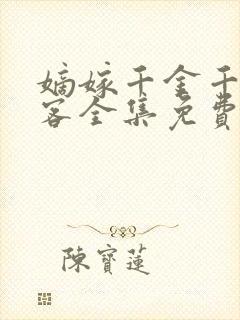 嫡嫁千金千
客全集免費
陳寶蓮